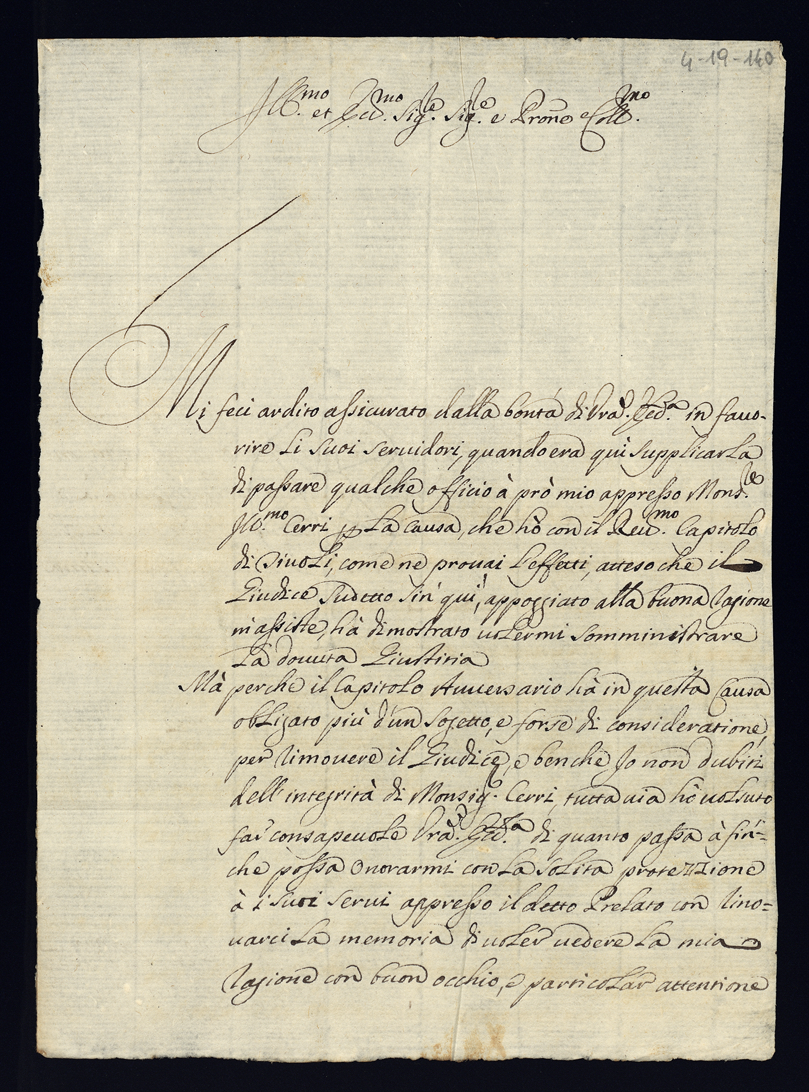 4-19-140
Ill.mo et Ecc.mo Sig.re Sig.re e Prone Coll.mo
Mi feci ardito assicurato dalla bontà di Vra. Ecc.a in favo-
rire li suoi servidori, quando era qui supplicarla
di passare qualche officio à prò mio appresso Mons.re
Ill.mo Cerri p la causa, che hò con il Reu.mo Capitolo
di Tivoli, come ne prouai l'effetti, atteso che il
Giudice sudetto sin' qui, appoggiato alla buona ragione
m'assiste, hà dimostrato uolermi somministrare
la douuta Giustitia
Mà perche il Capitolo Auuersario hà in questa Causa
obligato più d'un sogetto, e forse di consideratione,
per rimouere il Giudice, e benche Io non dubiti
dell'integrità di Monsig.r Cerri, tutta uia hò uolsuto
far consapeuole Vra. Ecc.a di quanto passa à fin-
che possa onorarmi con la solita protezzione
à i suoi serui appresso il detto Prelato con rino=
uarci la memoria di uoler uedere la mia
ragione con buon occhio, e particolar attentione